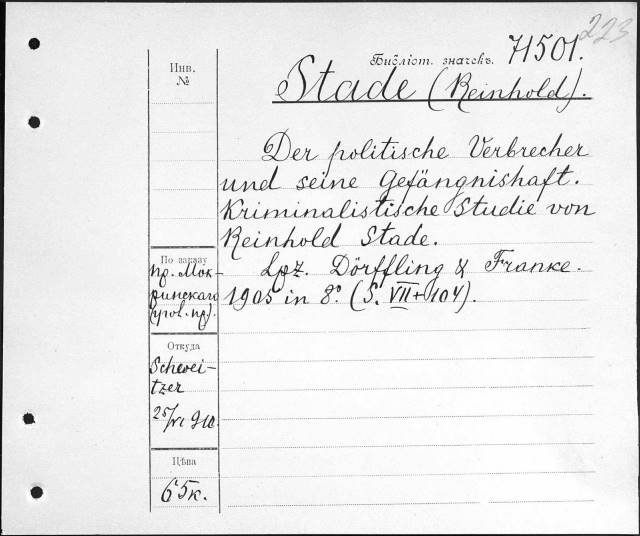 223
Библіот. значекъ. 71501.
Stade (Reinhold).
Инв.
№
Der politische Verbrecher
und seine Gefängnishaft.
Kriminalistische Studie von
Reinhold Stade.
Lpz. Dörffling & Franke.
1905 in 8°. (S. VII+104).
По заказу
пр. Мок-
ринскаго
(угол. пр).
Откуда
Schwei-
tzer
25/VI 910.
Цѣна
65к.